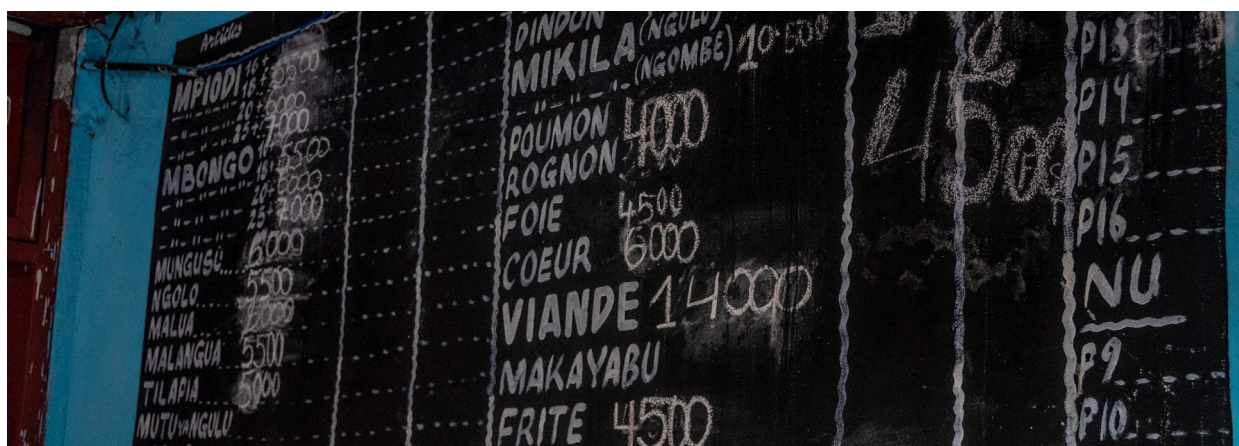 Articles
MPIODI 16+ 5500
-"- -"- 18+
-"- -"- 20+ 6000
-"- -"- 25+ 7000
MBONGO 16+ 5500
-"- -"- 18+
-"- -"- 20+ 6000
-"- -"- 25+ 7000
MUNGUSU 6000
NGOLO 5500
MALUA
MALANGUA 5500
TILAPIA 5000
MUTU ya NGULU
DINDON
MIKILA (NGULU)
-"- -"- -"- (NGOMBE) 10 500
POUMON 4000
ROGNON 4000
FOIE 4500
COEUR 6000
VIANDE 14000
MAKAYABU
FRITE 4500
4500
P13
P14
P15
P16
NU
P9
P10